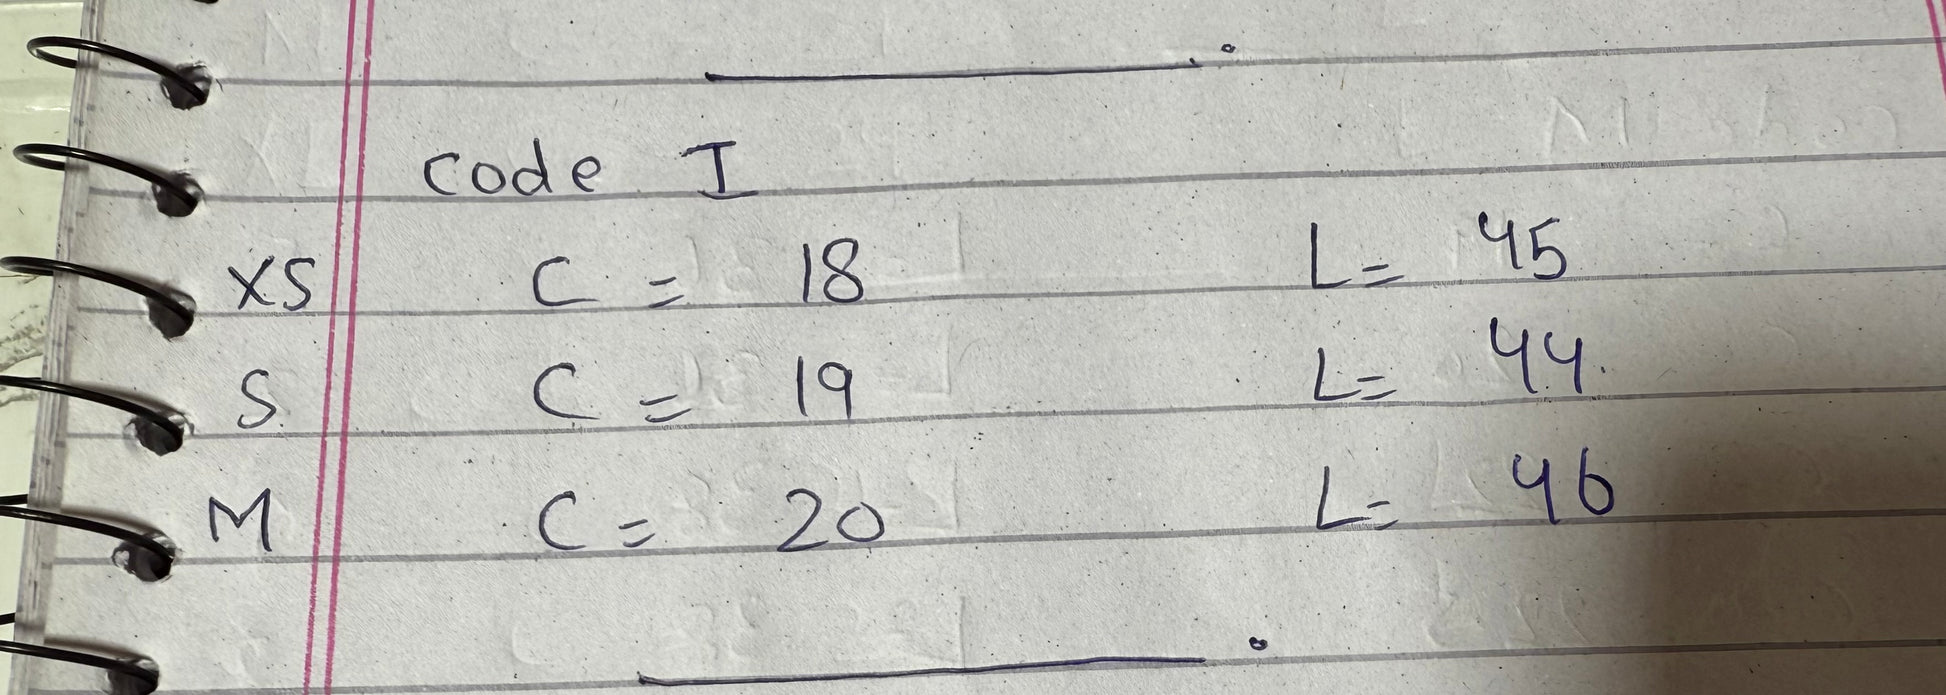 Code I
XS C = 18 L= 45
S C = 19 L= 44.
M C = 20 L= 46